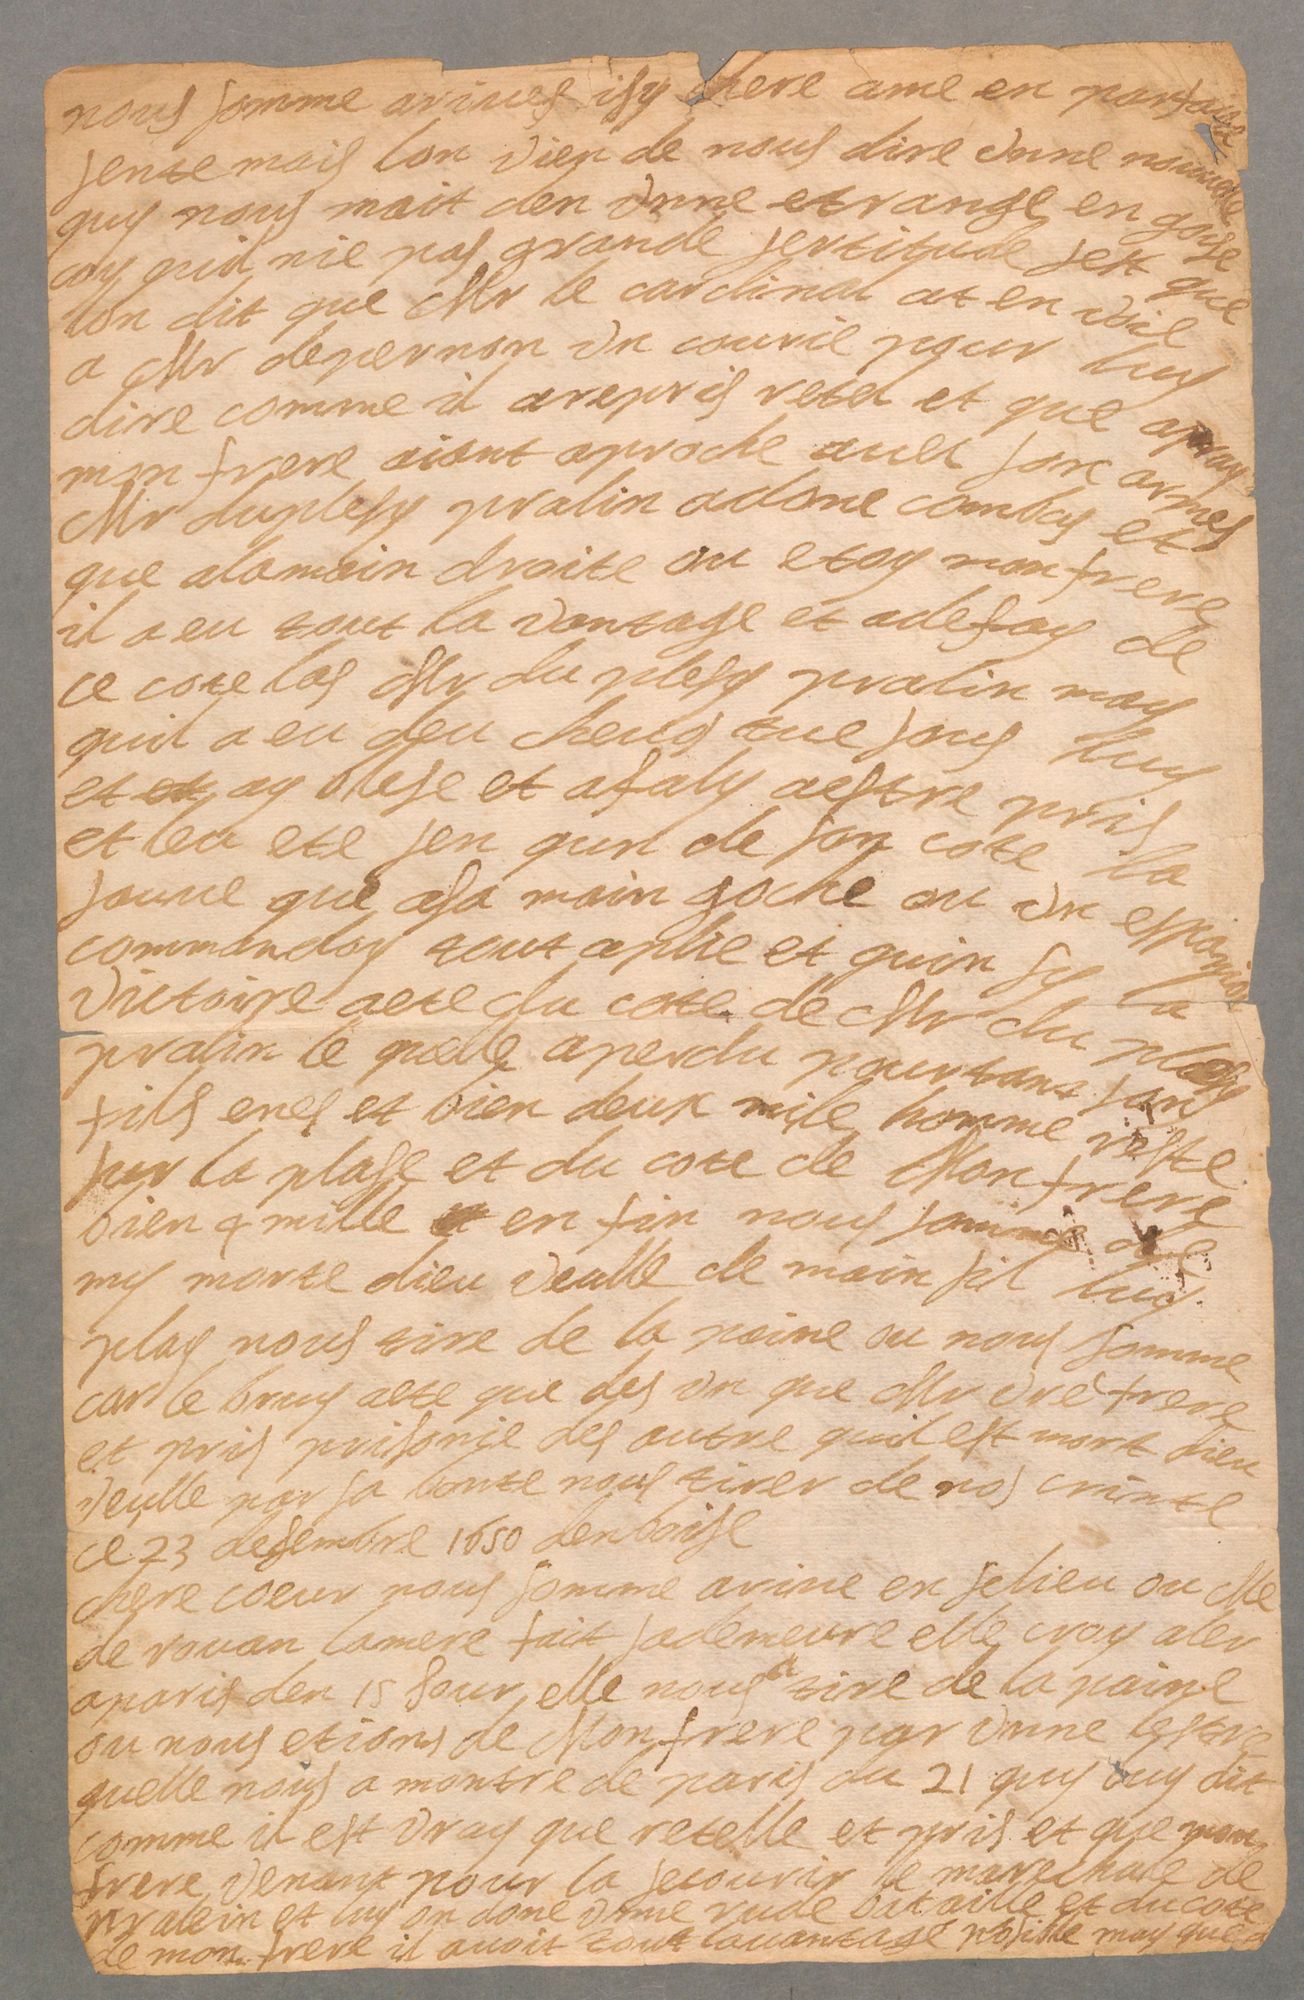 nous somme arives isy chere ame en parfaite
sente mais lon vien de nous dire vnne nouuelle
quy nous mait den vnne etrange en goise
coy quil nie pas grande sertitude sest que
lon dit que Mr le cardinal at en voie
a Mr depernon vn courie pour luy
dire comme il arepris retel et que apray
mon frere aiant aproche auec son armes
Mr duplesy pralin adone combas et
que alamain droite ou etoy mon frere
il a eu tout la vantage et adefay de
ce cote las Mr du plesy pralin may
quil a eu deu cheuos tue sous luy
et ay blese et afaly aestre pris
et leu ete sen qun de son cote la
sauue que asa main goche ou vn espaniol
commandoy tout aplie et quin sy la
victoire aete du cote de Mr du plesy
pralin le quelle aperdu pourtant son
fils enes et bien deux mile homme reste
sur la plase et du cote de Mon frere
bien 4 mille en fin nous sommes de
my morte dieu veulle de main sil luy
play nous tire de la paine ou nous somme
car le bruy aete que des vn que Mr vre frere
et pris prisonie des autre quil est mort dieu
veulle par sa bonte nous tirer de nos crinte
ce 23 desembre 1650 denboise
chere coeur nous somme arive en selieu ou Me
de rouan lamere fait sademeure elle croy aler
aparis den 15 jour elle nous a tire de la paine
ou nous etions de Mon frere par vnne lestre
quelle nous a montre de paris du 21 quy luy dit
comme il est vray que retelle et pris et que mon
frere venant pour la secourir le marechale de
pralein et luy on done vnne rude bataille et du cote
de mon frere il auoit tout lauantage posible may que